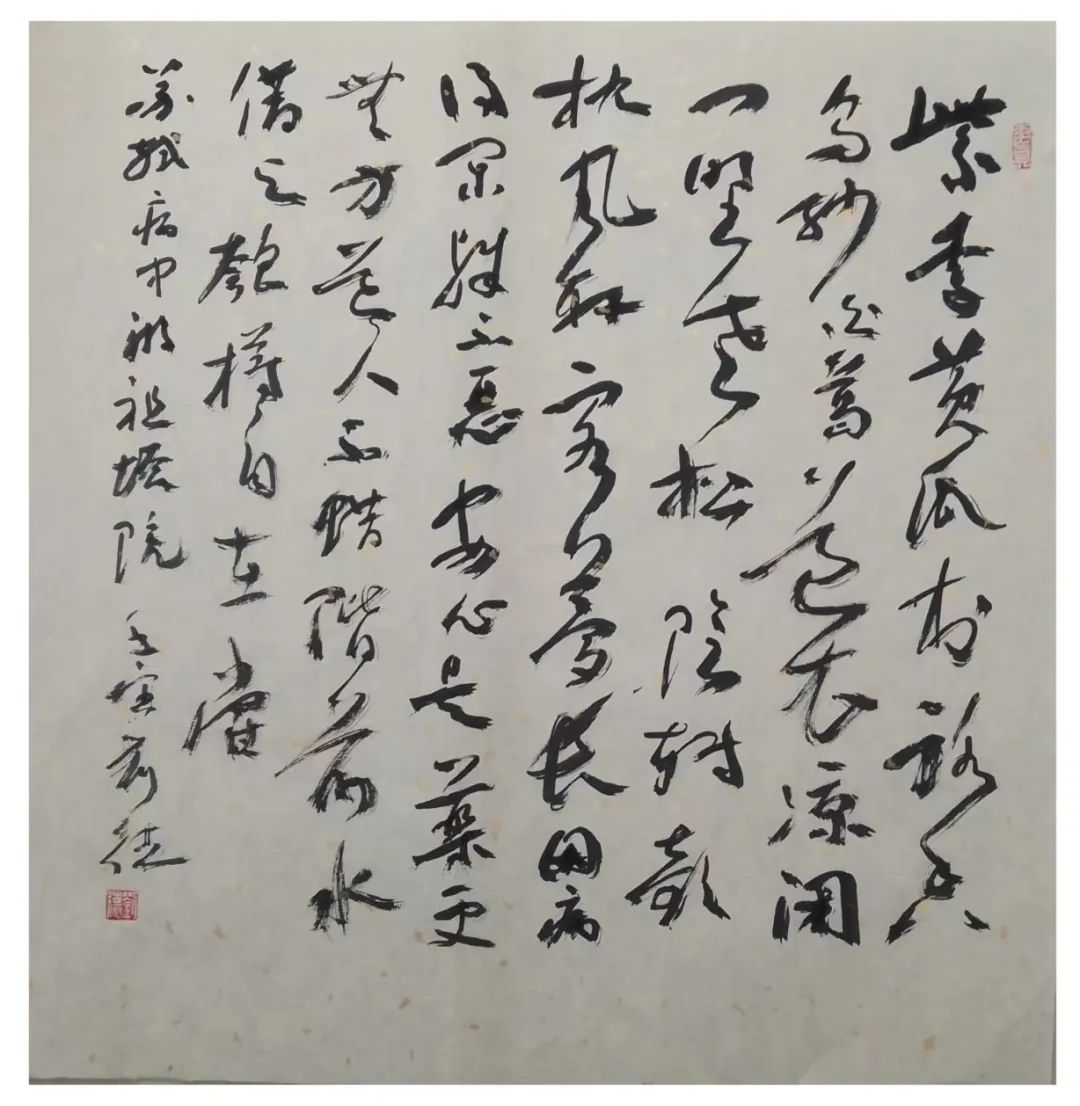 紫李黄瓜村路香
乌纱白葛道衣凉闭
门野寺松陰转欹
枕风轩客梦长因病
得闲殊不恶安心是藥更
無方道人不惜階前水
借与匏樽自在嘗
苏轼病中游祖塔院 壬寅